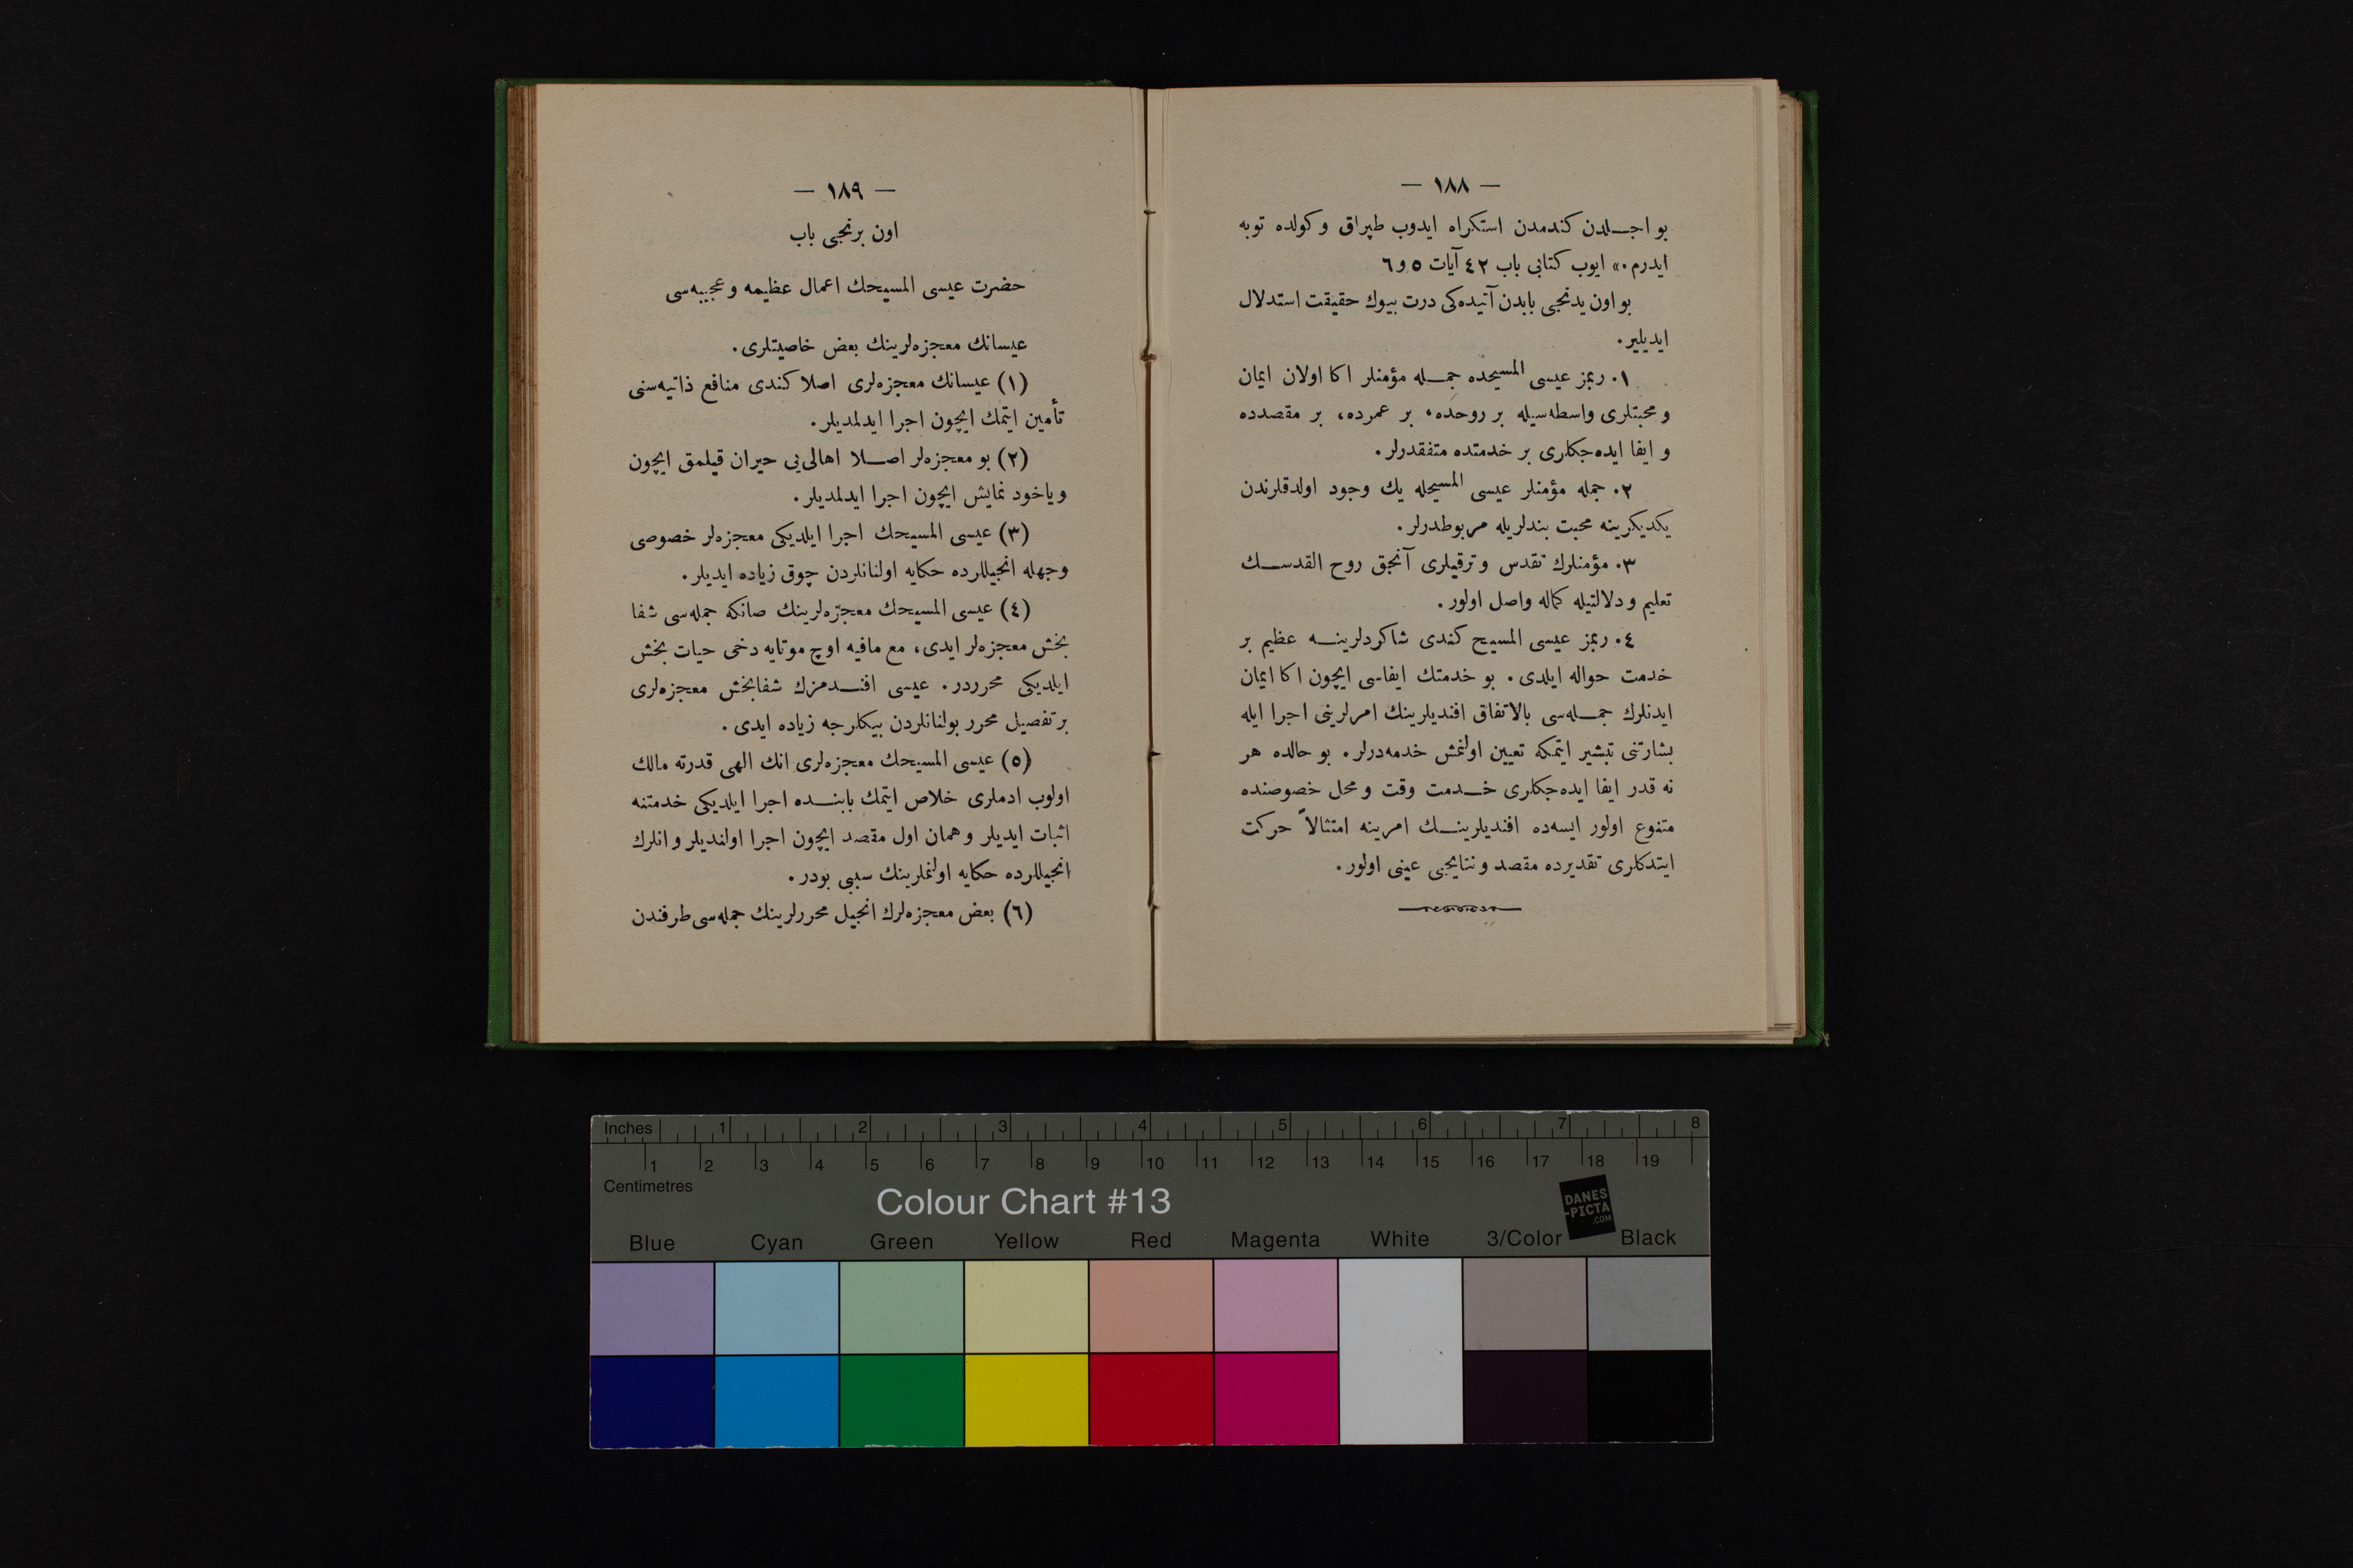 — ١٨٨ —
بو اجـلدن كندمدن استكراه ايدوب طپراق وكولده توبه
ايدرم.» ايوب كتابى باب ٤٢ آيات ٥ و ٦
بو اون يدنجى بابدن آتيده‌كى درت بيوك حقيقت استدلال
ايديلير.
١. ربمز عيسى المسيحده جمـله مؤمنلر اكا اولان ايمان
و محبتلرى واسطه‌سيله بر روحده، بر عمرده، بر مقصدده
و ايفا ايده‌جكلرى بر خدمتده متفقدرلر.
٢. جمله مؤمنلر عيسى المسيحله يك وجود اولدقلرندن
يكديكرينه محبت بندلريله مربوطدرلر.
٣. مؤمنلرك تقدس وترقيلرى آنجق روح القدسـك
تعليم ودلالتيله كماله واصل اولور.
٤. ربمز عيسى المسيح كندى شاكردلرينـه عظيم بر
خدمت حواله ايلدى. بو خدمتك ايفاسى ايچون اكا ايمان
ايدنلرك جمـله‌سى بالاتفاق افنديلرينك امرلرينى اجرا ايله
بشارتنى تبشير ايتمكه تعيين اولنمش خدمه‌درلر. بو حالده هر
نه قدر ايفا ايده‌جكلرى خـدمت وقت و محل خصوصنده
متنوع اولور ايسه‌ده افنديلرينـك امرينه امتثالاً حركت
ايتدكلرى تقديرده مقصد ونتايجى عينى اولور.
— ١٨٩ —
اون برنجى باب
حضرت عيسى المسيحك اعمال عظيمه و عجيبه‌سى
عيسانك معجزه‌لرينك بعض خاصيتلرى.
(١) عيسانك معجزه‌لرى اصلا كندى منافع ذاتيه‌سنى
تأمين ايتمك ايچون اجرا ايدلمديلر.
(٢) بو معجزه‌لر اصـلا اهالى‌يى حيران قيلمق ايچون
وياخود نمايش ايچون اجرا ايدلمديلر.
(٣) عيسى المسيحك اجرا ايلديكى معجزه‌لر خصوصى
وجهله انجيللرده حكايه اولنانلردن چوق زياده ايديلر.
(٤) عيسى المسيحك معجزه‌لرينك صانكه جمله‌سى شفا
بخش معجزه‌لر ايدى، مع مافيه اوچ موتايه دخى حيات بخش
ايلديكى محرردر. عيسى افنـدمزك شفابخش معجزه‌لرى
بر تفصيل محرر بولنانلردن بيكلرجه زياده ايدى.
(٥) عيسى المسيحك معجزه‌لرى انك الهى قدرته مالك
اولوب ادملرى خلاص ايتمك بابنـده اجرا ايلديكى خدمتنه
اثبات ايديلر وهمان اول مقصد ايچون اجرا اولنديلر وانلرك
انجيللرده حكايه اولنملرينك سببى بودر.
(٦) بعض معجزه‌لرك انجيل محررلرينك جمله‌سى طرفندن
Inches 1 2 3 4 5 6 7 8
1 2 3 4 5 6 7 8 9 10 11 12 13 14 15 16 17 18 19
Centimetres
Colour Chart #13
DANES
-PICTA
.COM
Blue Cyan Green Yellow Red Magenta White 3/Color Black